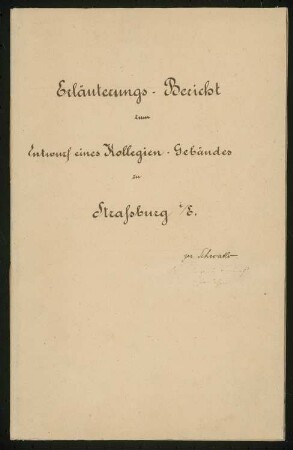 Erläuterungs-Bericht
zum
Entwurf eines Kollegien-Gebäudes
zu
Straßburg i/E.